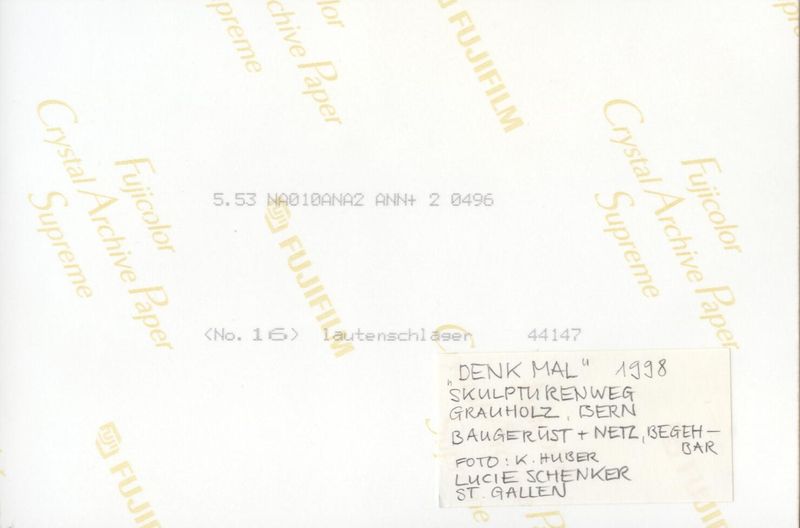 Crystal Archive Paper
Supreme
FUJIFILM
Fujicolor
Crystal Archive Paper
Supreme
Fujicolor
Crystal Archive Paper
Supreme
5.53 NA010ANA2 ANN+ 2 0496
FUJIFILM
<No. 16> lautenschlager 44147
FUJIFILM
„DENK MAL“ 1998
SKULPTURENWEG
GRAUHOLZ, BERN
BAUGERÜST + NETZ, BEGEH-
BAR
FOTO: K. HUBER
LUCIE SCHENKER
ST. GALLEN